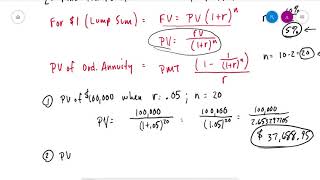 For $1 (Lump Sum) = FV = PV (1+r)^n
PV = FV / (1+r)^n
5%
n = 10·2 = 20
PV of Ord. Annuity = PMT (1 - 1/(1+r)^n) / r
① PV of $100,000 when r = .05 ; n = 20
PV = 100,000 / (1+.05)^20 = 100,000 / (1.05)^20 = 100,000 / 2.653297705
$ 37,688.95
② PV